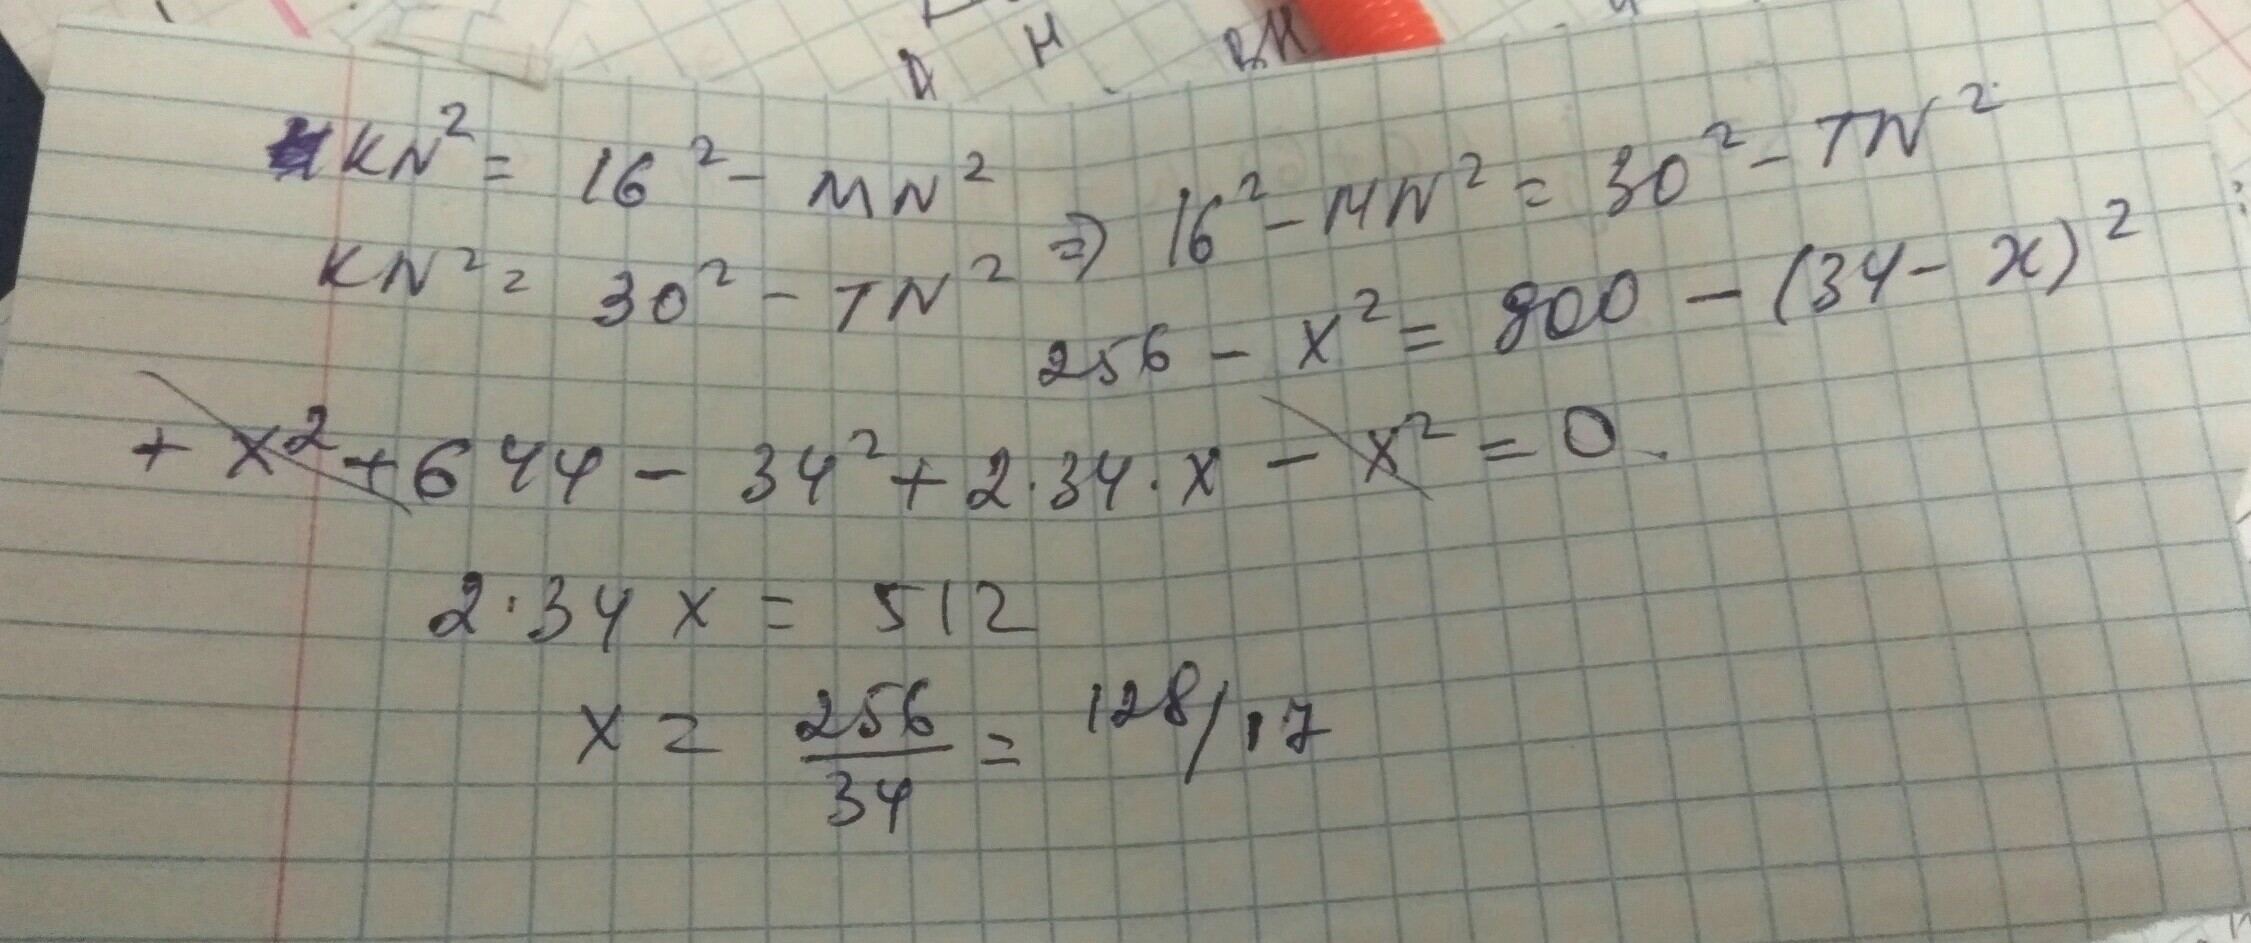 А Н ВК
KN² = 16² - MN²
KN² = 30² - TN² => 16² - MN² = 30² - TN²
256 - x² = 900 - (34 - x)²
+ x² + 644 - 34² + 2·34·x - x² = 0.
2·34x = 512
x = 256/34 = 128/17